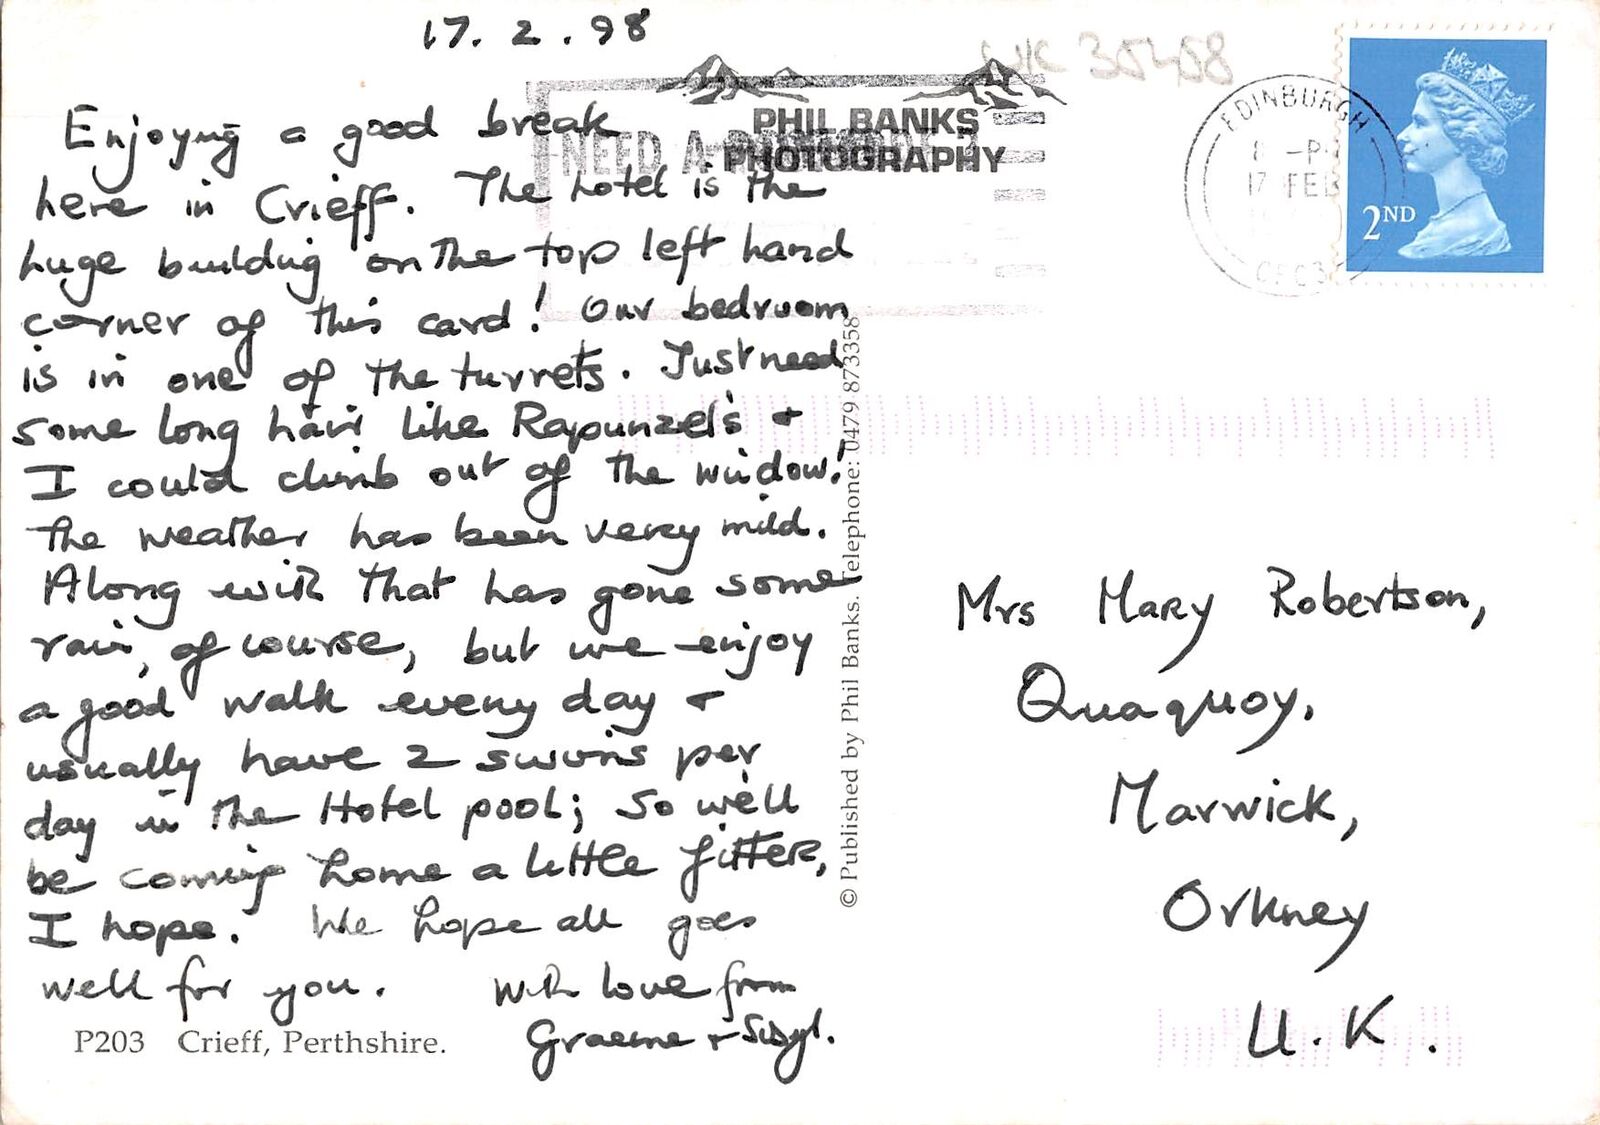 17.2.98
Enjoying a good break
here in Crieff. The hotel is the
huge building on the top left hand
corner of this card! Our bedroom
is in one of the turrets. Just need
some long hair like Rapunzel's +
I could climb out of the window!
The weather has been very mild.
Along with that has gone some
rain, of course, but we enjoy
a good walk every day +
usually have 2 swims per
day in the Hotel pool; so we'll
be coming home a little fitter,
I hope. We hope all goes
well for you. With love from
Graeme + Sibyl.
P203 Crieff, Perthshire.
PHIL BANKS
PHOTOGRAPHY
NEED A
© Published by Phil Banks. Telephone: 0479 873358
UK 35458
EDINBURGH
17 FEB
2ND
Mrs Mary Robertson,
Quaquoy,
Marwick,
Orkney
U.K.